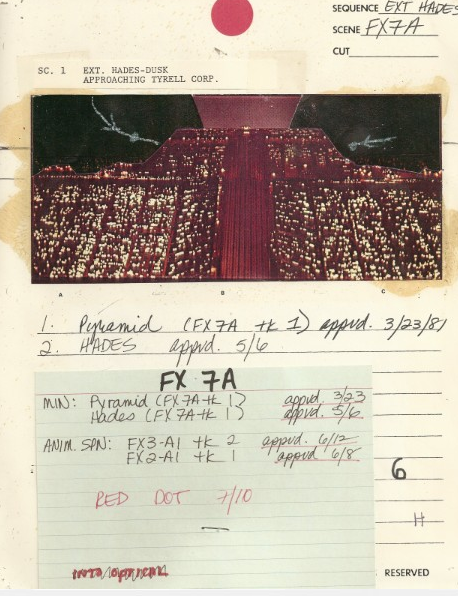 SEQUENCE EXT HADES
SCENE FX7A
CUT
SC. 1 EXT. HADES-DUSK
APPROACHING TYRELL CORP.
A B C
1. Pyramid (FX7A tk 1) appvd. 3/23/81
2. HADES appvd. 5/6
FX 7A
MIN: Pyramid (FX7A tk 1) appvd. 3/23
Hades (FX7A tk 1) appvd. 5/6
ANIM. SPN: FX3-A1 tk 2 appvd. 6/12
FX2-A1 tk 1 appvd. 6/8
6
RED DOT 7/10
H
INTO OPTICAL
RESERVED